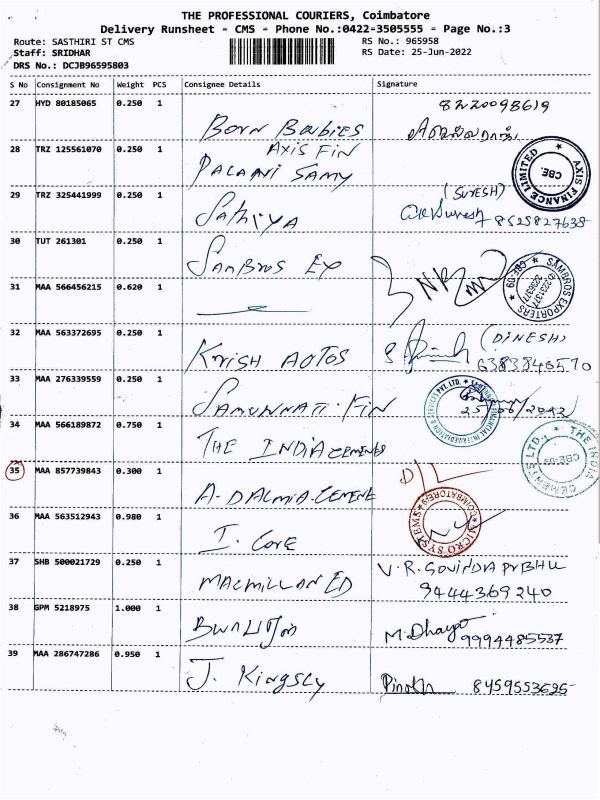 THE PROFESSIONAL COURIERS, Coimbatore
Delivery Runsheet - CMS - Phone No.:0422-3505555 - Page No.:3
Route: SASTHIRI ST CMS
RS No.: 965958
Staff: SRIDHAR
RS Date: 25-Jun-2022
DRS No.: DCJB96595803
S No Consignment No Weight PCS Consignee Details Signature
27 HYD 80185065 0.250 1
Born Babies
28 TRZ 125561070 0.250 1 AXIS FIN
PALAANI SAMY
AXIS FINANCE LIMITED
CBE.
29 TRZ 325441999 0.250 1 (SURESH)
Sathiya
8525827638
30 TUT 261301 0.250 1
SAMBROS EXP
SAMBROS EXPORTERS
CBE-09
31 MAA 566456215 0.620 1
32 MAA 563372695 0.250 1 (DINESH)
KRISH AOTOS
33 MAA 276339559 0.250 1
SAMUNNATI FIN
34 MAA 566189872 0.750 1
THE INDIA CEMENTS
THE INDIA CEMENTS LTD.,
CBE-09
35 MAA 857739843 0.300 1
A-DALMIA-CEMENE
36 MAA 563512943 0.980 1
I. CORE
MICRO SYSTEMS
COIMBATORE
37 SHB 500021729 0.250 1 V.R.GOVINDA PRBHU
MACMILLAN ED 9444369240
38 GPM 5218975 1.000 1
M.Dhaya 9994485537
39 MAA 286747286 0.950 1
J. KINGSLY 8459553625